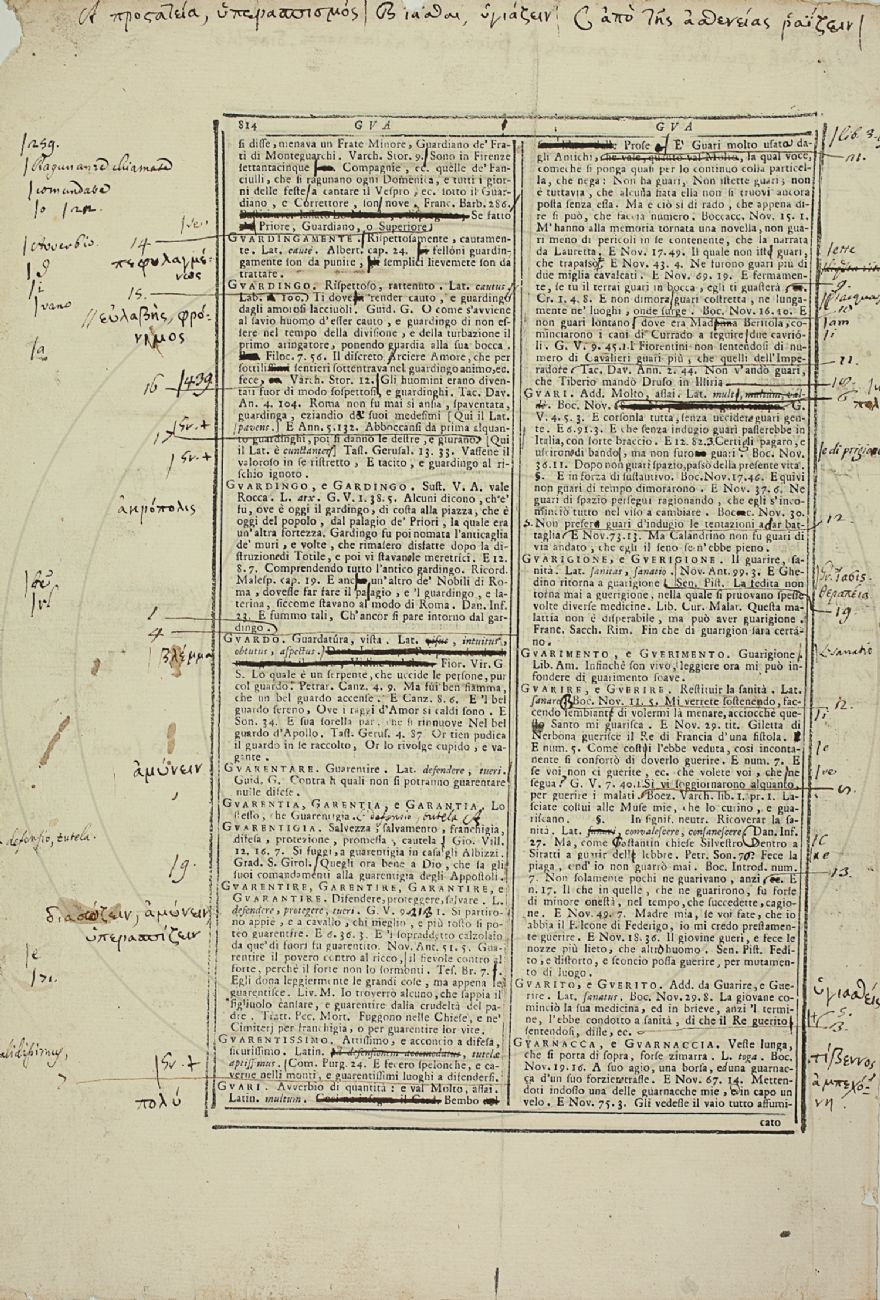 A προστατεία, ὑπερασπισμός | B ἰᾶσθαι, ὑγιάζειν | C ἀπὸ τῆς ἀσθενείας ῥαΐζειν |
814 GVA
si disse, menava un Frate Minore, Guardiano de' Fra-
ti di Monteguarchi. Varch. Stor. 9. Sono in Firenze
settantacinque Compagnie, ec. quelle de' Fan-
ciulli, che si ragunano ogni Domenica, e tutti i gior-
ni delle feste a cantare il Vespro, ec. sotto il Guar-
diano, e Correttore, son nove. Franc. Barb. 286.
Se fatto
Priore, Guardiano, o Superiore
GVARDINGAMENTE. Rispettosamente, cautamen-
te. Lat. caute. Albert. cap. 24. felloni guardin-
gamente son da punire, semplici lievemete son da
trattare.
GVARDINGO. Rispettoso, rattenuto. Lat. cautus.
Lab. 100. Ti dove render cauto, e guardingo
dagli amorosi lacciuoli. Guid. G. O come s'avviene
al savio huomo d'esser cauto, e guardingo di non es-
sere nel tempo della divisione, e della turbazione il
primo aringatore, ponendo guardia alla sua bocca.
Filoc. 7. 56. Il discreto Arciere Amore, che per
sottilissimi sentieri sottentrava nel guardingo animo, ec.
fece, Varch. Stor. 12. Gli huomini erano diven-
tati fuor di modo sospettosi, e guardinghi. Tac. Dav.
An. 4. 104. Roma non fu mai sì ansia, spaventata,
guardinga, eziandio de' suoi medesimi [Qui il Lat.
pavens.] E Ann. 5. 132. Abboccansi da prima alquan-
to guardinghi, poi si danno le destre, e giurano [Qui
il Lat. è cunctanter] Tass. Gerusal. 13. 33. Vassene il
valoroso in se ristretto, E tacito, e guardingo al ri-
schio ignoto.
GVARDINGO, e GARDINGO. Sust. V. A. vale
Rocca. L. arx. G. V. 1. 38. 5. Alcuni dicono, ch'e'
fu, ove è oggi il gardingo, di costa alla piazza, che è
oggi del popolo, dal palagio de' Priori, la quale era
un'altra fortezza. Gardingo fu poi nomata l'anticaglia
de' muri, e volte, che rimasero disfatte dopo la di-
struzione di Totile, e poi vi stavano le meretrici. E 12.
8. 7. Comprendendo tutto l'antico gardingo. Ricord.
Malesp. cap. 19. E anche un'altro de' Nobili di Ro-
ma, dovesse far fare il palagio, e 'l guardingo, e la-
terina, siccome stavano al modo di Roma. Dan. Inf.
23. E summo tali, Ch'ancor si pare intorno dal gar-
dingo.
GVARDO. Guardatura, vista. Lat. visus, intuitus,
obtutus, aspectus.
Fior. Vir. G
S. Lo quale è un serpente, che uccide le persone, pur
col guardo. Petrar. Canz. 4. 9. Ma fui ben fiamma,
che un bel guardo accense. E Canz. 8. 6. E 'l bel
guardo sereno, Ove i raggi d'Amor sì caldi sono. E
Son. 34. E sua sorella par, che si rinnuove Nel bel
guardo d'Apollo. Tass. Gerus. 4. 87 Or tien pudica
il guardo in se raccolto, Or lo rivolge cupido, e va-
gante.
GVARENTARE. Guarentire. Lat. defendere, tueri.
Guid. G. Contra li quali non si potranno guarentare
nulle difese.
GVARENTIA, GARENTIA, e GARANTIA. Lo
stesso, che Guarentigia. L. defensio, tutela
GVARENTIGIA. Salvezza, salvamento, franchigia,
difesa, protezione, promessa, cautela Gio. Vill.
12. 16. 7. Si fuggì a guarentigia in casa gli Albizzi.
Grad. S. Girol. Quegli ora bene a Dio, che fa gli
suoi comandamenti alla guarentigia degli Appostoli.
GVARENTIRE, GARENTIRE, GARANTIRE, e
GVARANTIRE. Difendere, proteggere, salvare. L.
defendere, protegere, tueri. G. V. 9. 218. 1. Si partiro-
no appiè, e a cavallo, chi meglio, e più tosto si po-
teo guarentire. E 6. 36. 3. E 'l sopraddetto calzolaio
da que' di fuori fu guarentito. Nov. Ant. 51. 5. Gua-
rentire il povero contro al ricco, il fievole contro al
forte, perchè il forte non lo sormonti. Tes. Br. 7.
Egli dona leggiermente le grandi cose, ma appena le
guarentisce. Liv. M. Io troverrò alcuno, che sappia il
figliuolo cansare, e guarentire dalla crudeltà del pa-
dre. Tratt. Pec. Mort. Fuggono nelle Chiese, e ne'
Cimiterj per franchigia, o per guarentire lor vite.
GVARENTISSIMO. Attissimo, e acconcio a difesa,
sicurissimo. Latin. ad defensionem accomodatus, tutelae
aptissimus. Com. Purg. 24. E fecero spelonche, e ca-
verne nelli monti, e guarentissimi luoghi a difendersi.
GVARI. Avverbio di quantità: e val Molto, assai.
Latin. multum. Bembo
GVA
Prose E' Guari molto usato da-
gli Antichi, che vale, quanto val Molto, la qual voce,
comechè si ponga quasi per lo continuo colla particel-
la, che nega: Non ha guari, Non istette guari; non
è tuttavia, che alcuna fiata ella non si truovi ancora
posta senza essa. Ma è ciò sì di rado, che appena di-
re si può, che faccia numero. Boccacc. Nov. 15. 1.
M'hanno alla memoria tornata una novella, non gua-
ri meno di pericoli in se contenente, che la narrata
da Lauretta. E Nov. 17. 49. Il quale non istè guari,
che trapassò. E Nov. 43. 4. Ne furono guari più di
due miglia cavalcati. E Nov. 69. 19. E fermamen-
te, se tu il terrai guari in bocca, egli ti guasterà
Cr. 1. 4. 8. E non dimora guari costretta, ne lunga-
mente ne' luoghi, onde surge. Boc. Nov. 16. 10. E
non guari lontano, dove era Madama Beritola, co-
minciarono i cani di Currado a seguire i due cavrió-
li. G. V. 9. 45. 1. I Fiorentini non sentendosi di nu-
mero di Cavalieri guari più, che quelli dell'Impe-
radore. Tac. Dav. Ann. 2. 44. Non v'andò guari,
che Tiberio mandò Druso in Illiria.
GVARI. Add. Molto, assai. Lat. multus,
Boc. Nov. G.
V. 4. 5. 3. E corsonla tutta, senza uccidere guari gen-
te. E 6. 91. 3. E che senza indugio guari passerebbe in
Italia, con forte braccio. E 12. 82. 3. Certi gli pagaro, e
usciron di bando, ma non furono guari. Boc. Nov.
36. 11. Dopo non guari spazio, passò della presente vita.
§. E in forza di sustantivo. Boc. Nov. 17. 46. E quivi
non guari di tempo dimorarono. E Nov. 37. 6. Ne
guari di spazio perseguì ragionando, che egli s'inco-
minciò tutto nel viso a cambiare. Bocac. Nov. 30.
5. Non preserò guari d'indugio le tentazioni a dar bat-
taglia. E Nov. 73. 13. Ma Calandrino non fu guari di
via andato, che egli il seno se n'ebbe pieno.
GVARIGIONE, e GVERIGIONE. Il guarire, sa-
nità. Lat. sanitas, sanatio. Nov. Ant. 99. 3. E Ghe-
dino ritorna a guarigione. Sen. Pist. La fedita non
torna mai a guerigione, nella quale si pruovano spesse
volte diverse medicine. Lib. Cur. Malat. Questa ma-
lattia non è disperabile, ma può aver guarigione.
Franc. Sacch. Rim. Fin che di guarigion sarà certa-
no.
GVARIMENTO, e GVERIMENTO. Guarigione.
Lib. Am. Infinchè son vivo, leggiere ora mi può in-
fondere di guarimento soave.
GVARIRE, e GVERIRE. Restituir la sanità. Lat.
sanare. Boc. Nov. 11. 5. Mi verrete sostenendo, fac-
cendo sembianti di volermi là menare, acciocchè que-
sto Santo mi guarisca. E Nov. 29. tit. Giletta di
Nerbona guerisce il Re di Francia d'una fistola.
E num. 5. Come costui l'ebbe veduta, così inconta-
nente si confortò di doverlo guerire. E num. 7. E
se voi non ci guerite, ec. che volete voi, che ne
segua? G. V. 7. 40. 1. Si vi soggiornarono alquanto,
per guerire i malati. Boez. Varch. lib. 1. pr. 1. La-
sciate costui alle Muse mie, che lo curino, e gua-
riscano. §. In signif. neutr. Ricoverar la sa-
nità. Lat. convalescere, consanescere. Dan. Inf.
27. Ma, come Costantin chiese Silvestro Dentro a
Siratti a guerir della lebbre. Petr. Son. 70. Fece la
piaga, ond'io non guarrò mai. Boc. Introd. num.
7. Non solamente pochi ne guarivano, anzi ec. E
n. 17. Il che in quelle, che ne guarirono, fu forse
di minore onestà, nel tempo, che succedette, cagio-
ne. E Nov. 49. 7. Madre mia, se voi fate, che io
abbia il Falcone di Federigo, io mi credo prestamen-
te guerire. E Nov. 18. 36. Il giovine guerì, e fece le
nozze più lieto, che altro huomo. Sen. Pist. Fedi-
to, e distorto, e sconcio possa guerire, per mutamen-
to di luogo.
GVARITO, e GVERITO. Add. da Guarire, e Gue-
rire. Lat. sanatus. Boc. Nov. 29. 8. La giovane co-
minciò la sua medicina, ed in brieve, anzi 'l termi-
ne, l'ebbe condotto a sanità, di che il Re guerito
sentendosi, disse, ec.
GVARNACCA, e GVARNACCIA. Veste lunga,
che si porta di sopra, forse zimarra. L. toga. Boc.
Nov. 19. 16. A suo agio, una borsa, ed una guarnac-
ca d'un suo forziere trasse. E Nov. 67. 14. Metten-
doti indosso una delle guarnacche mie, ed in capo un
velo. E Nov. 75. 3. Gli vedesse il vaio tutto affumi-
cato
14
πεφυλαγμέ-
νως
15.
εὐλαβὴς, φρό-
νιμος
16
1439
ἀκρόπολις
1
4
βλέμμα
ἀμύνειν
defensio, tutela
19.
διασῴζειν, ἀμύνειν
ὑπερασπίζειν
πολύ
11.
12.
θεραπεία
19
Sanatio
12.
13.
ὑγιασθείς
τίβεννος
ἀμπεχό-
νη.